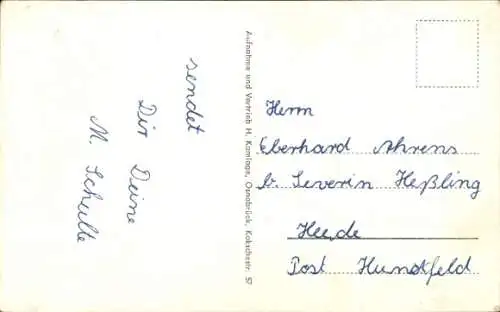 sendet
Dir Deine
M. Schulte
Aufnahme und Vertrieb H. Kamlage, Osnabrück, Kokschestr. 57
Herrn
Eberhard Ahrens
b. Severin Heßling
Heede
Post Hunstfeld